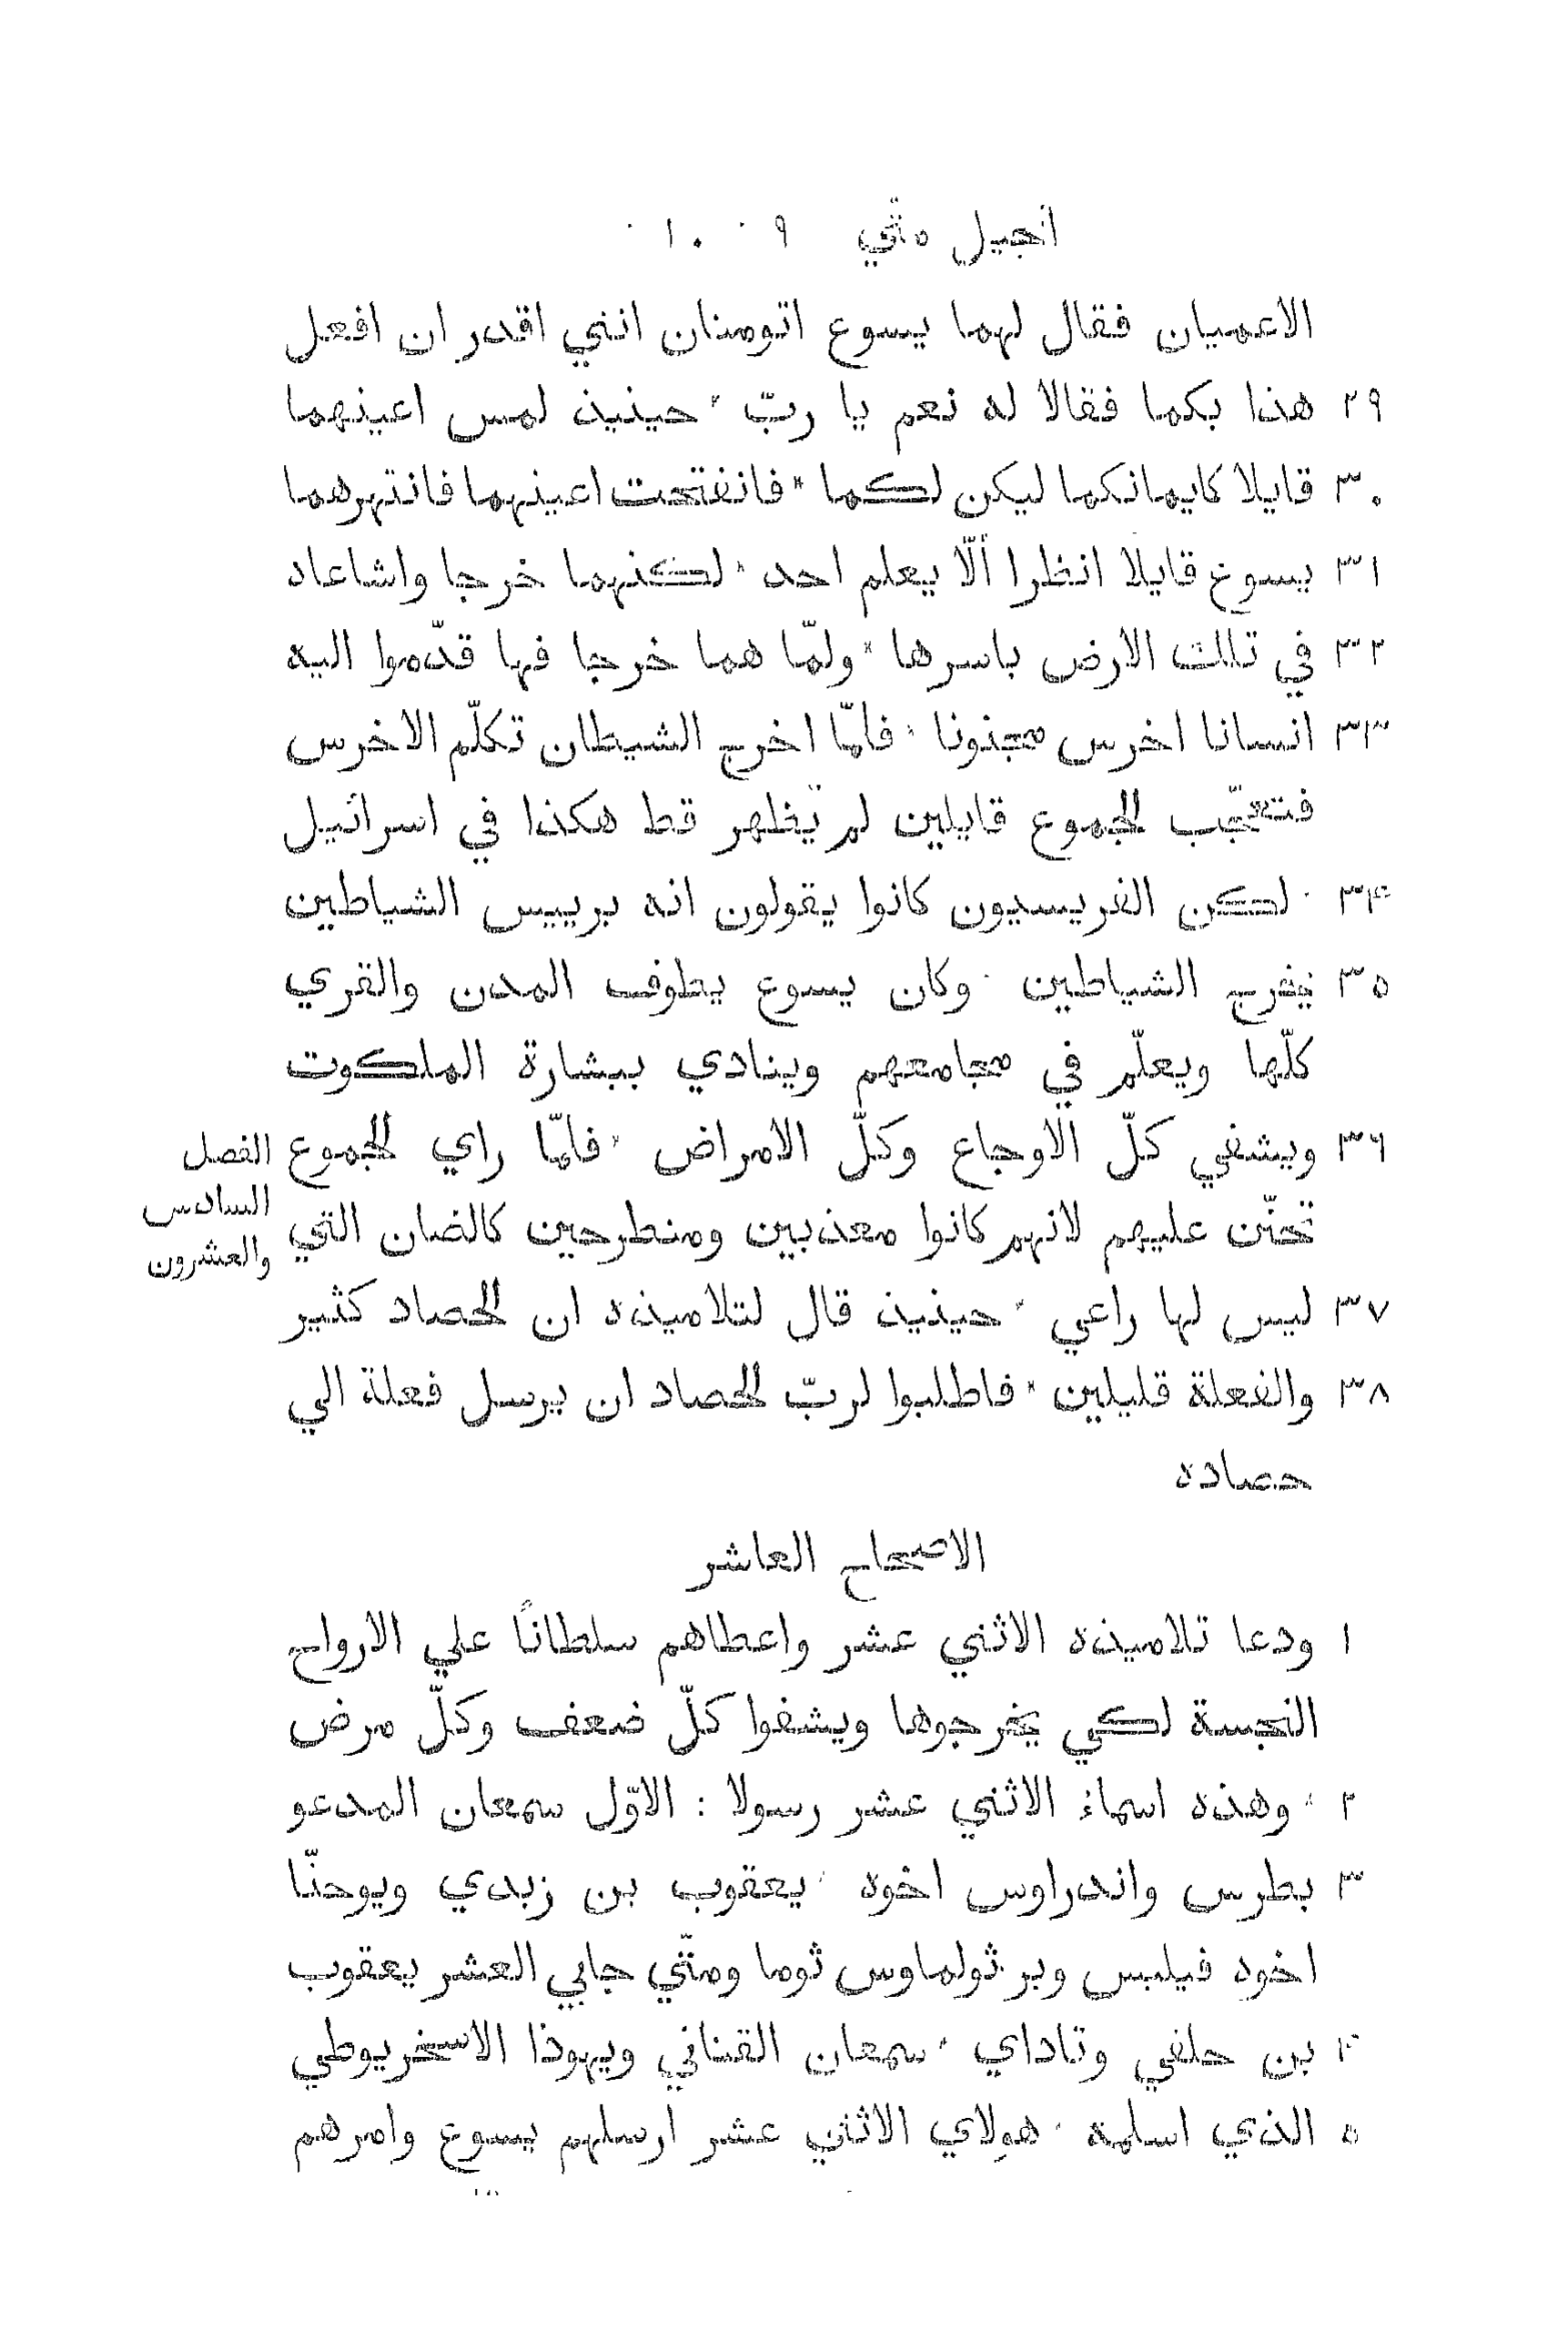 انجيل متّي ٩ ٠ ١٠ ٠
الاعميان فقال لهما يسوع اتومنان انني اقدر ان افعل
٢٩ هذا بكما فقالا له نعم يا ربّ * حينيذ لمس اعينهما
٣٠ قايلا كايمانكما ليكن لكما * فانفتحت اعينهما فانتهرهما
٣١ يسوع قايلا انظرا ألّا يعلم احد * لكنهما خرجا واشاعاه
٣٢ في تلك الارض باسرها * ولمّا هما خرجا فها قدّموا اليه
٣٣ انسانا اخرس مجنونا * فلمّا اخرج الشيطان تكلّم الاخرس
فتعجّب الجموع قايلين لم يظهر قط هكذا في اسرائيل
٣٤ * لكن الفريسيون كانوا يقولون انه برييس الشياطين
٣٥ يخرج الشياطين * وكان يسوع يطوف المدن والقري
كلّها ويعلّم في مجامعهم وينادي ببشارة الملكوت
٣٦ ويشفي كلّ الاوجاع وكلّ الامراض * فلمّا راي الجموع
الفصل
السادس
والعشرون
تحنّن عليهم لانهم كانوا معذبين ومنطرحين كالضان التي
٣٧ ليس لها راعي * حينيذ قال لتلاميذه ان الحصاد كثير
٣٨ والفعلة قليلين * فاطلبوا لربّ الحصاد ان يرسل فعلة الي
حصاده
الاصحاح العاشر
١ ودعا تلاميذه الاثني عشر واعطاهم سلطانًا علي الارواح
النجسة لكي يخرجوها ويشفوا كلّ ضعف وكلّ مرض
٢ * وهذه اسماء الاثني عشر رسولا : الاوّل سمعان المدعو
٣ بطرس واندراوس اخوه * يعقوب بن زبدي ويوحنّا
اخوه فيلبس وبرثولماوس ثوما ومتّي جابي العشر يعقوب
٤ بن حلفي وتاداي * سمعان القناني ويهوذا الاسخريوطي
٥ الذي اسلمه * هولاي الاثني عشر ارسلهم يسوع وامرهم